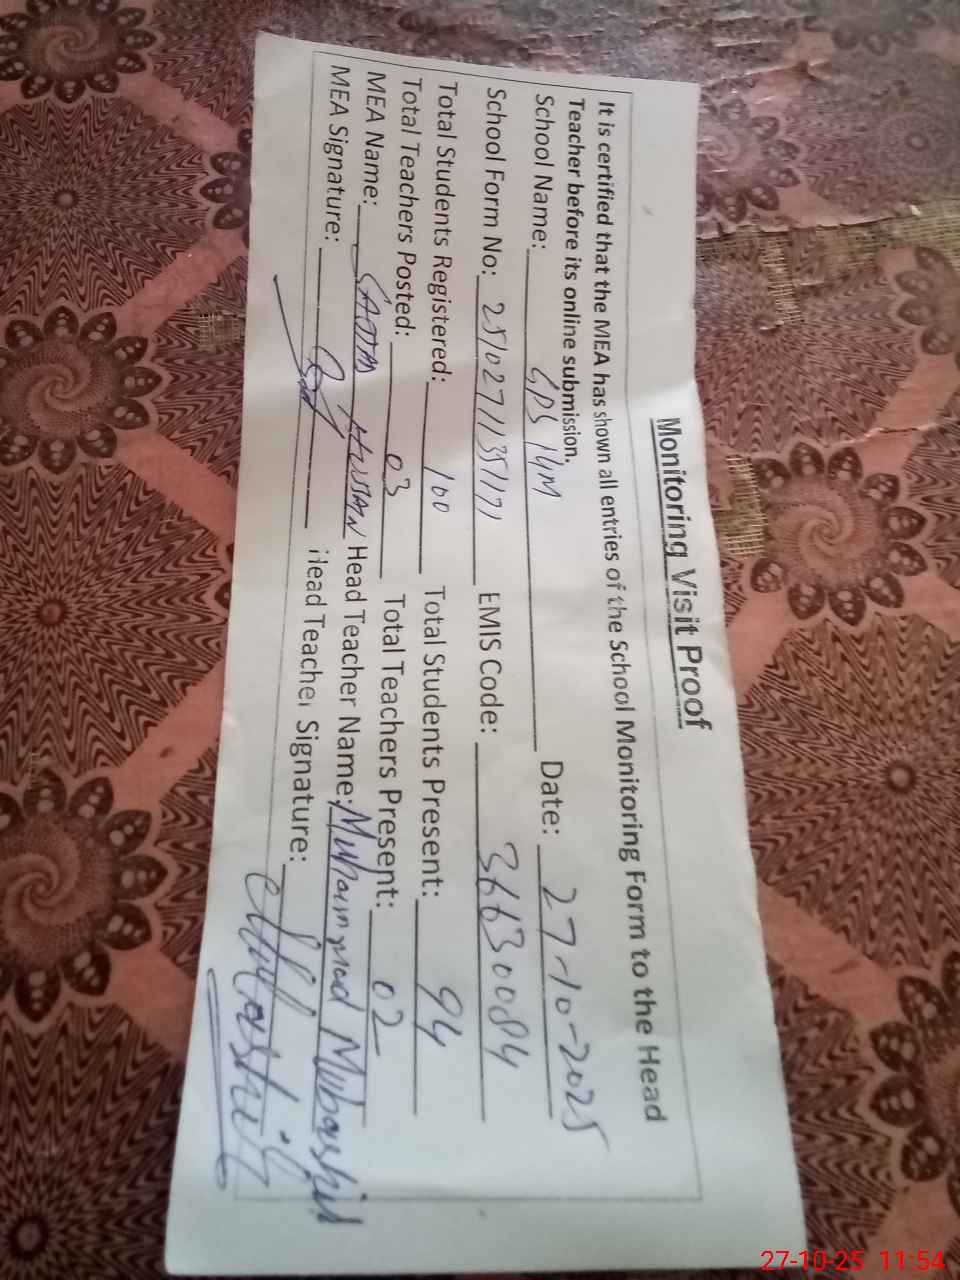 Monitoring Visit Proof
It is certified that the MEA has shown all entries of the School Monitoring Form to the Head
Teacher before its online submission.
School Name: GPS 14M Date: 27-10-2025
School Form No: EMIS Code: 36630084
Total Students Registered: 100 Total Students Present: 94
Total Teachers Posted: 03 Total Teachers Present: 02
MEA Name: HUSSAIN Head Teacher Name: Muhammad Mubashir
MEA Signature: Head Teacher Signature:
27-10-25 11:54